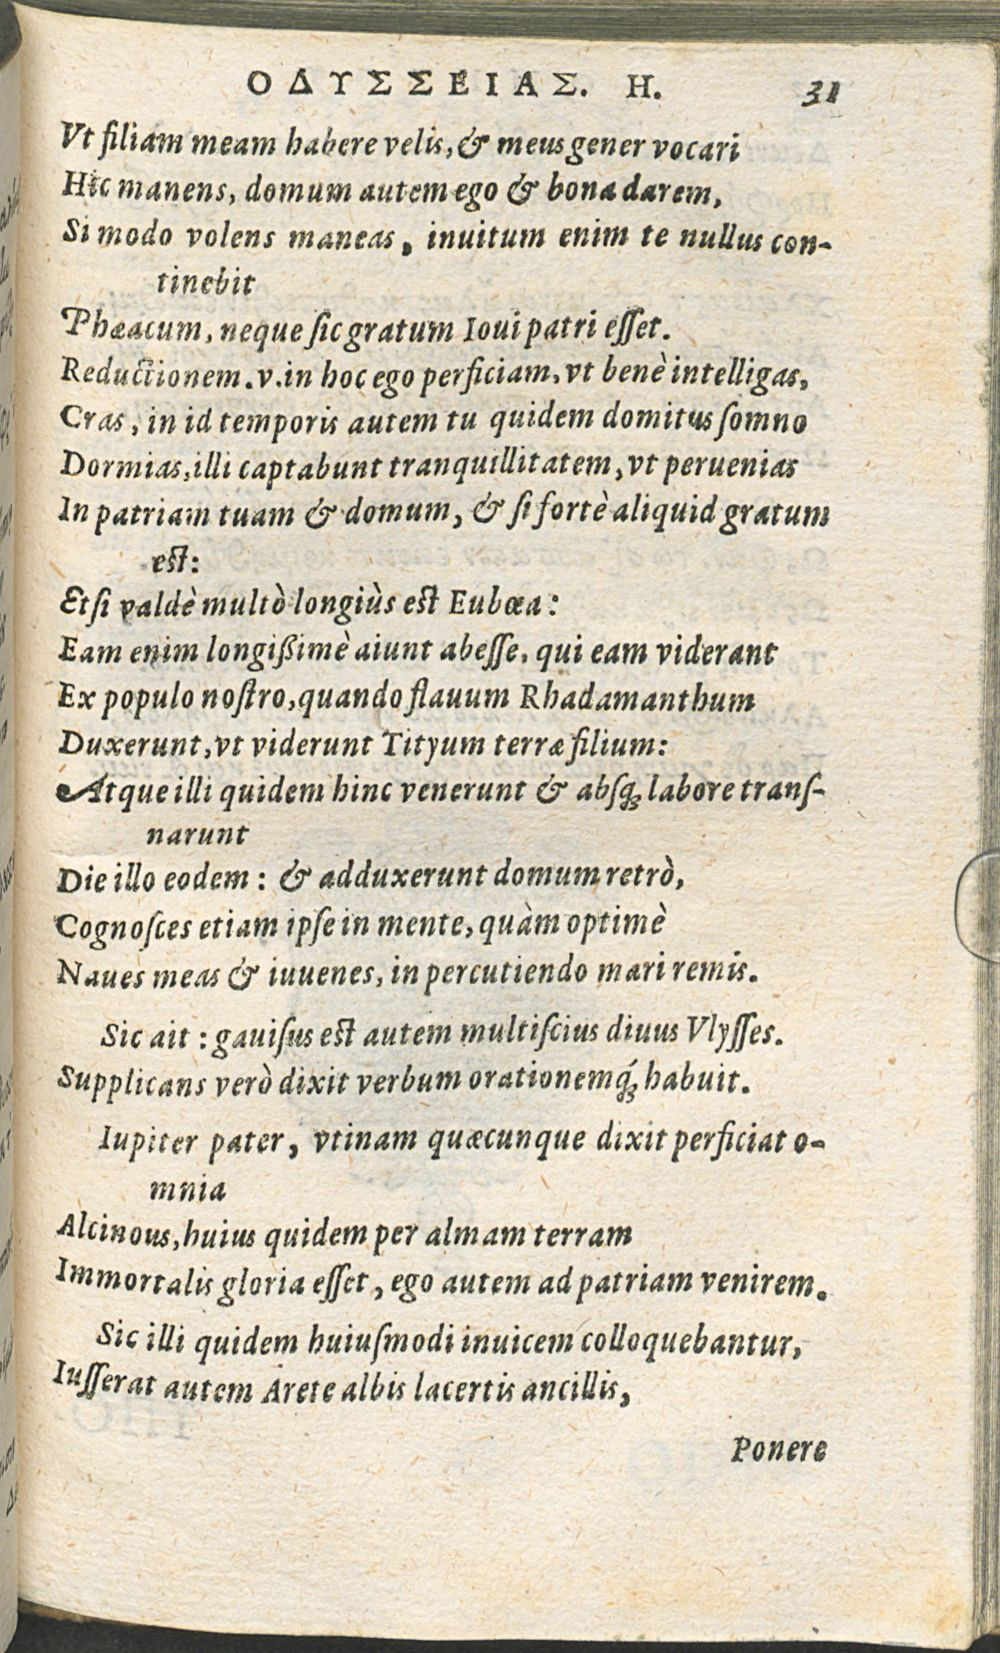 ΟΔΥΣΣΕΙΑΣ. Η. 31
Vt filiam meam habere velis, & meus gener vocari
Hic manens, domum autem ego & bona darem,
Si modo volens maneas, inuitum enim te nullus con-
tinebit
Phæacum, neque ſic gratum Ioui patri eſſet.
Reductionem .v. in hoc ego perficiam, vt benè intelligas,
Cras, in id temporis autem tu quidem domitus ſomno
Dormias, illi captabunt tranquillitatem, vt peruenias
In patriam tuam & domum, & ſi fortè aliquid gratum
eſt:
Etſi valdè multò longiùs eſt Eubœa:
Eam enim longißimè aiunt abeſſe, qui eam viderant
Ex populo noſtro, quando flauum Rhadamanthum
Duxerunt, vt viderunt Tityum terræ filium:
Atque illi quidem hinc venerunt & abſq; labore tranſ-
narunt
Die illo eodem: & adduxerunt domum retrò,
Cognoſces etiam ipſe in mente, quàm optimè
Naues meas & iuuenes, in percutiendo mari remis.
Sic ait: gauiſus eſt autem multiſcius diuus Vlyſſes.
Supplicans verò dixit verbum orationemq́; habuit.
Iupiter pater, vtinam quæcunque dixit perficiat o-
mnia
Alcinous, huius quidem per almam terram
Immortalis gloria eſſet, ego autem ad patriam venirem.
Sic illi quidem huiuſmodi inuicem colloquebantur,
Iuſſerat autem Arete albis lacertis ancillis,
Ponere